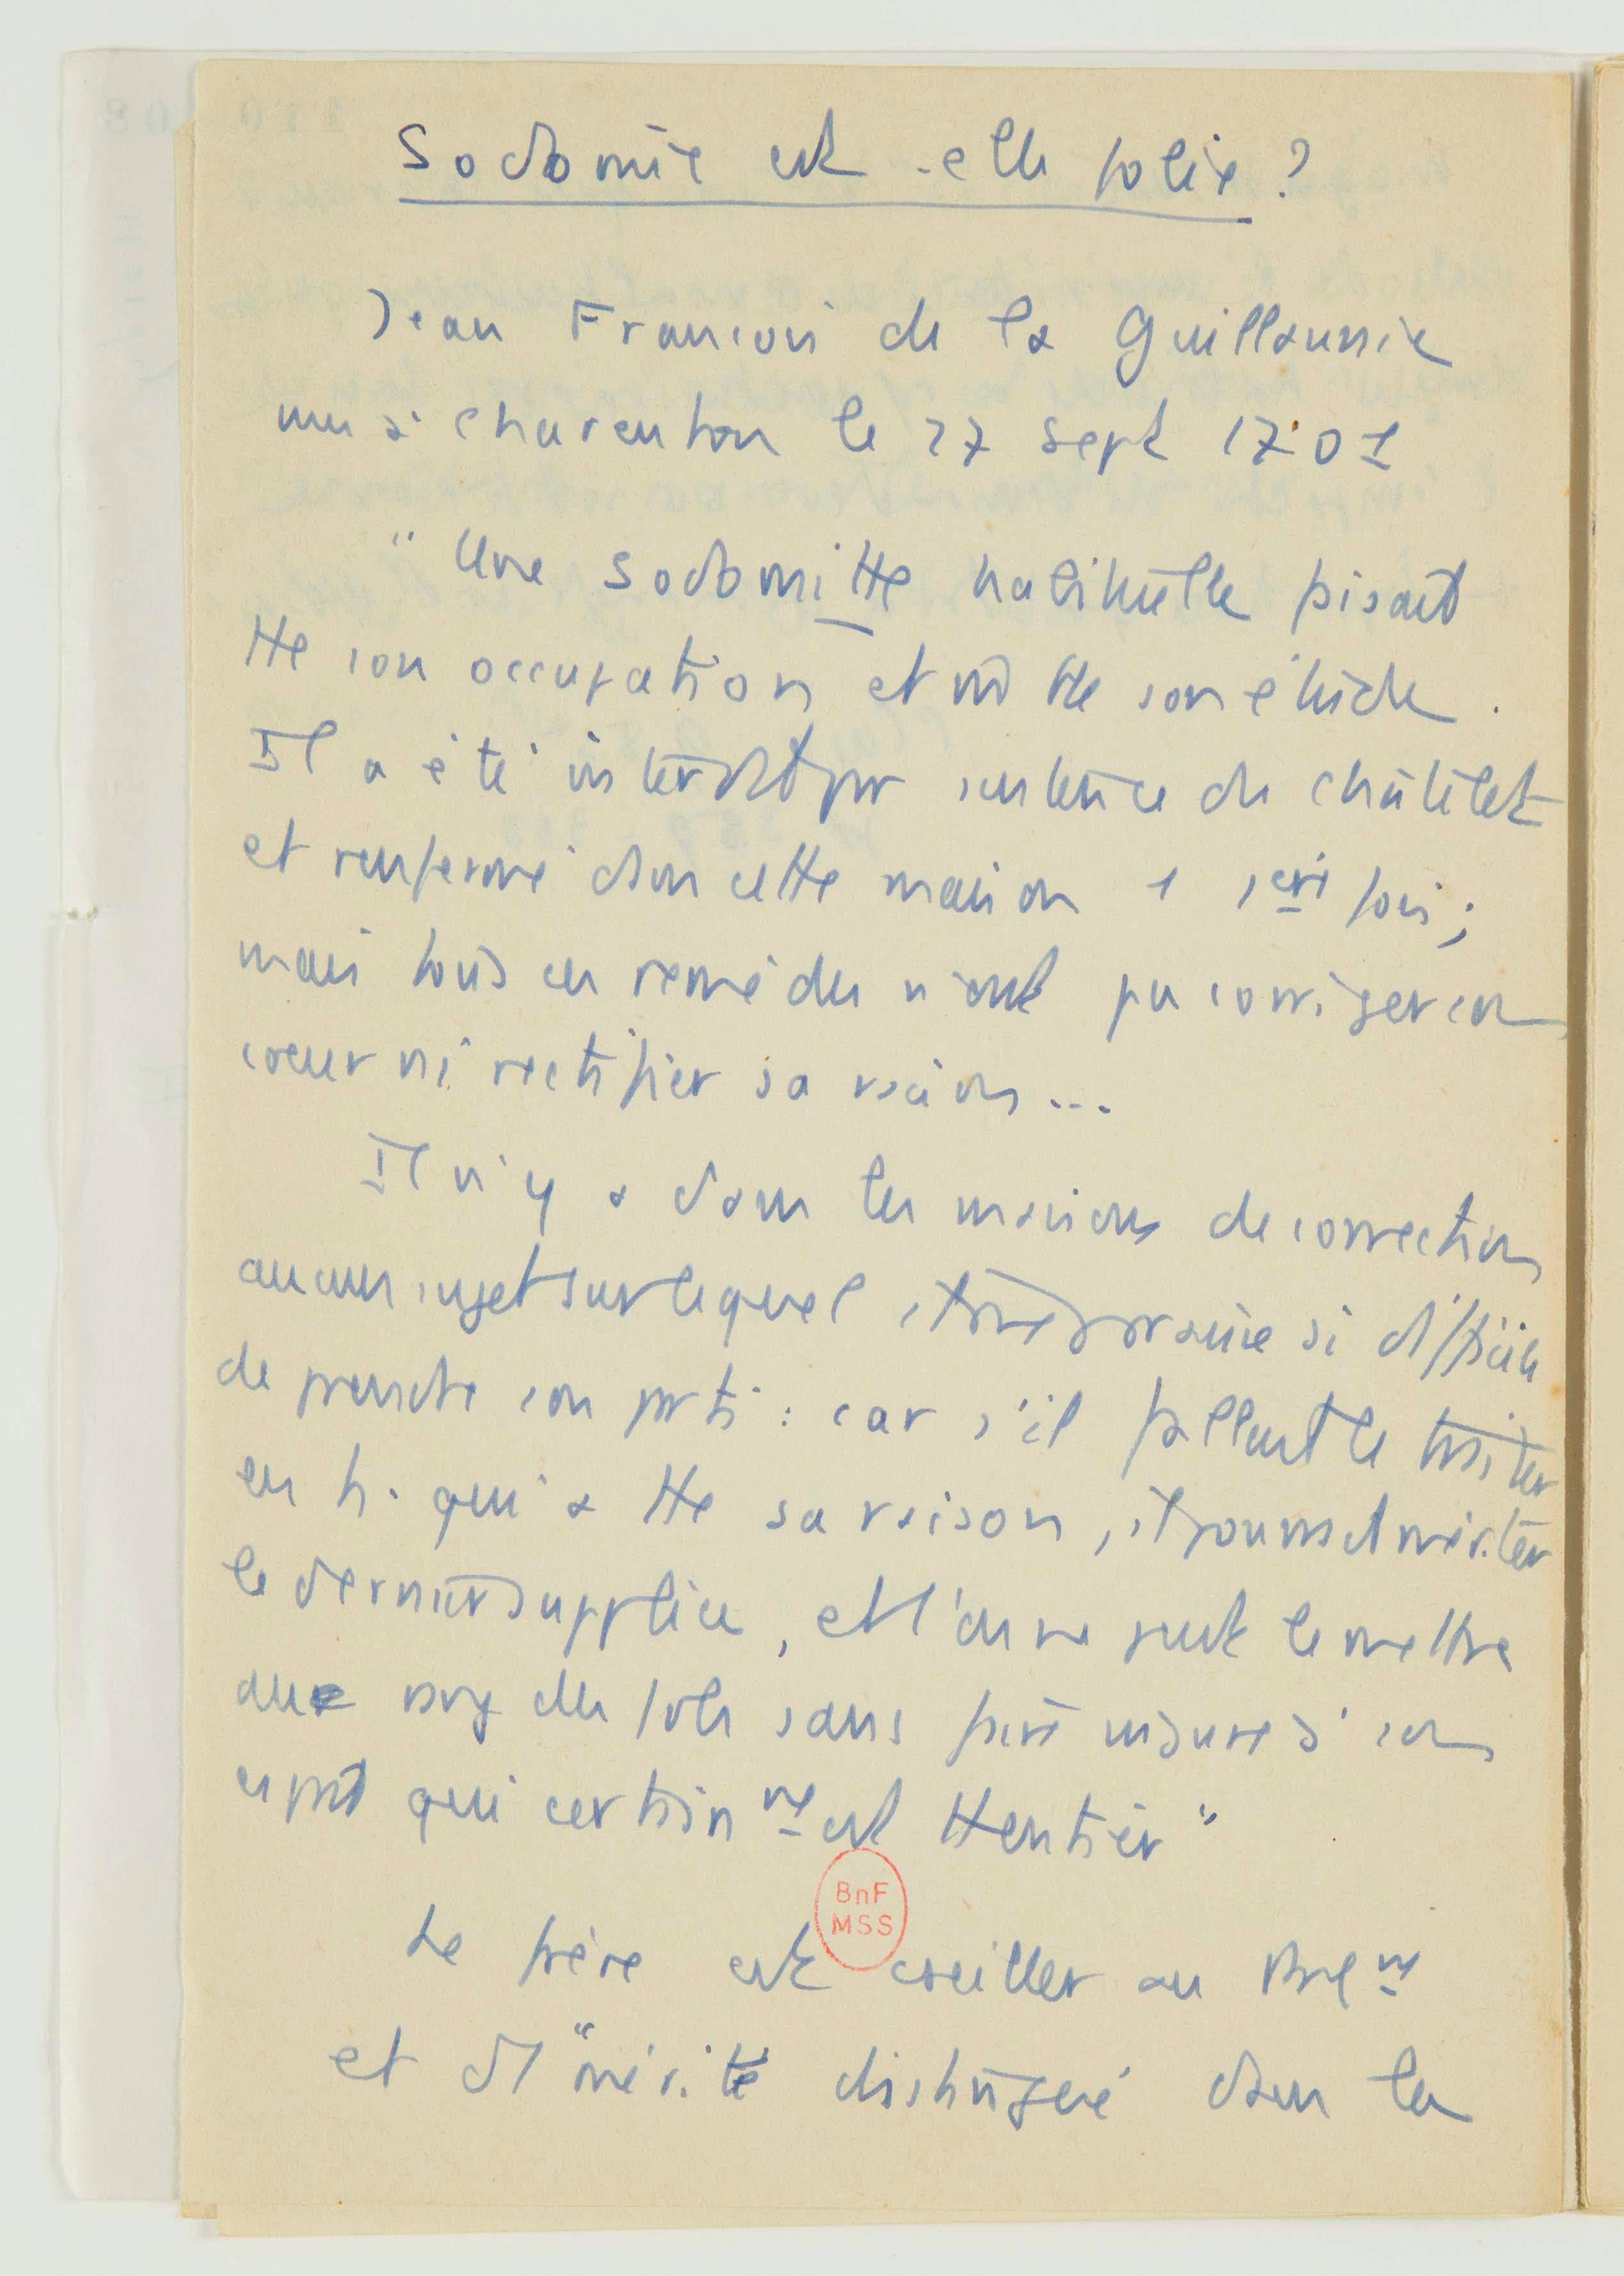 Sodomie est-elle folie ?
Jean François de la Guillaumie
mis à Charenton le 27 sept 1701
" Une sodomitte habituelle faisait
tte son occupation et tte son étude.
Il a été interdit par sentence du Châtelet
et renfermé dans cette maison 1 1ère fois ;
mais tous ces remèdes n'ont pu corriger son
coeur ni rectifier sa raison ...
Il n'y a dans les maisons de correction
aucun sujet sur lequel il me paraisse si difficile
de prendre son parti : car s'il fallait le traiter
en h. qui a tte sa raison, il pourrait mériter
le dernier supplice, et l'on ne peut le mettre
au rang des fols sans faire injure à son
esprit qui certainmt est tt entier "
Le frère est cseiller au Parlmt
et d'1 "mérite distingué dans les
BnF
MSS